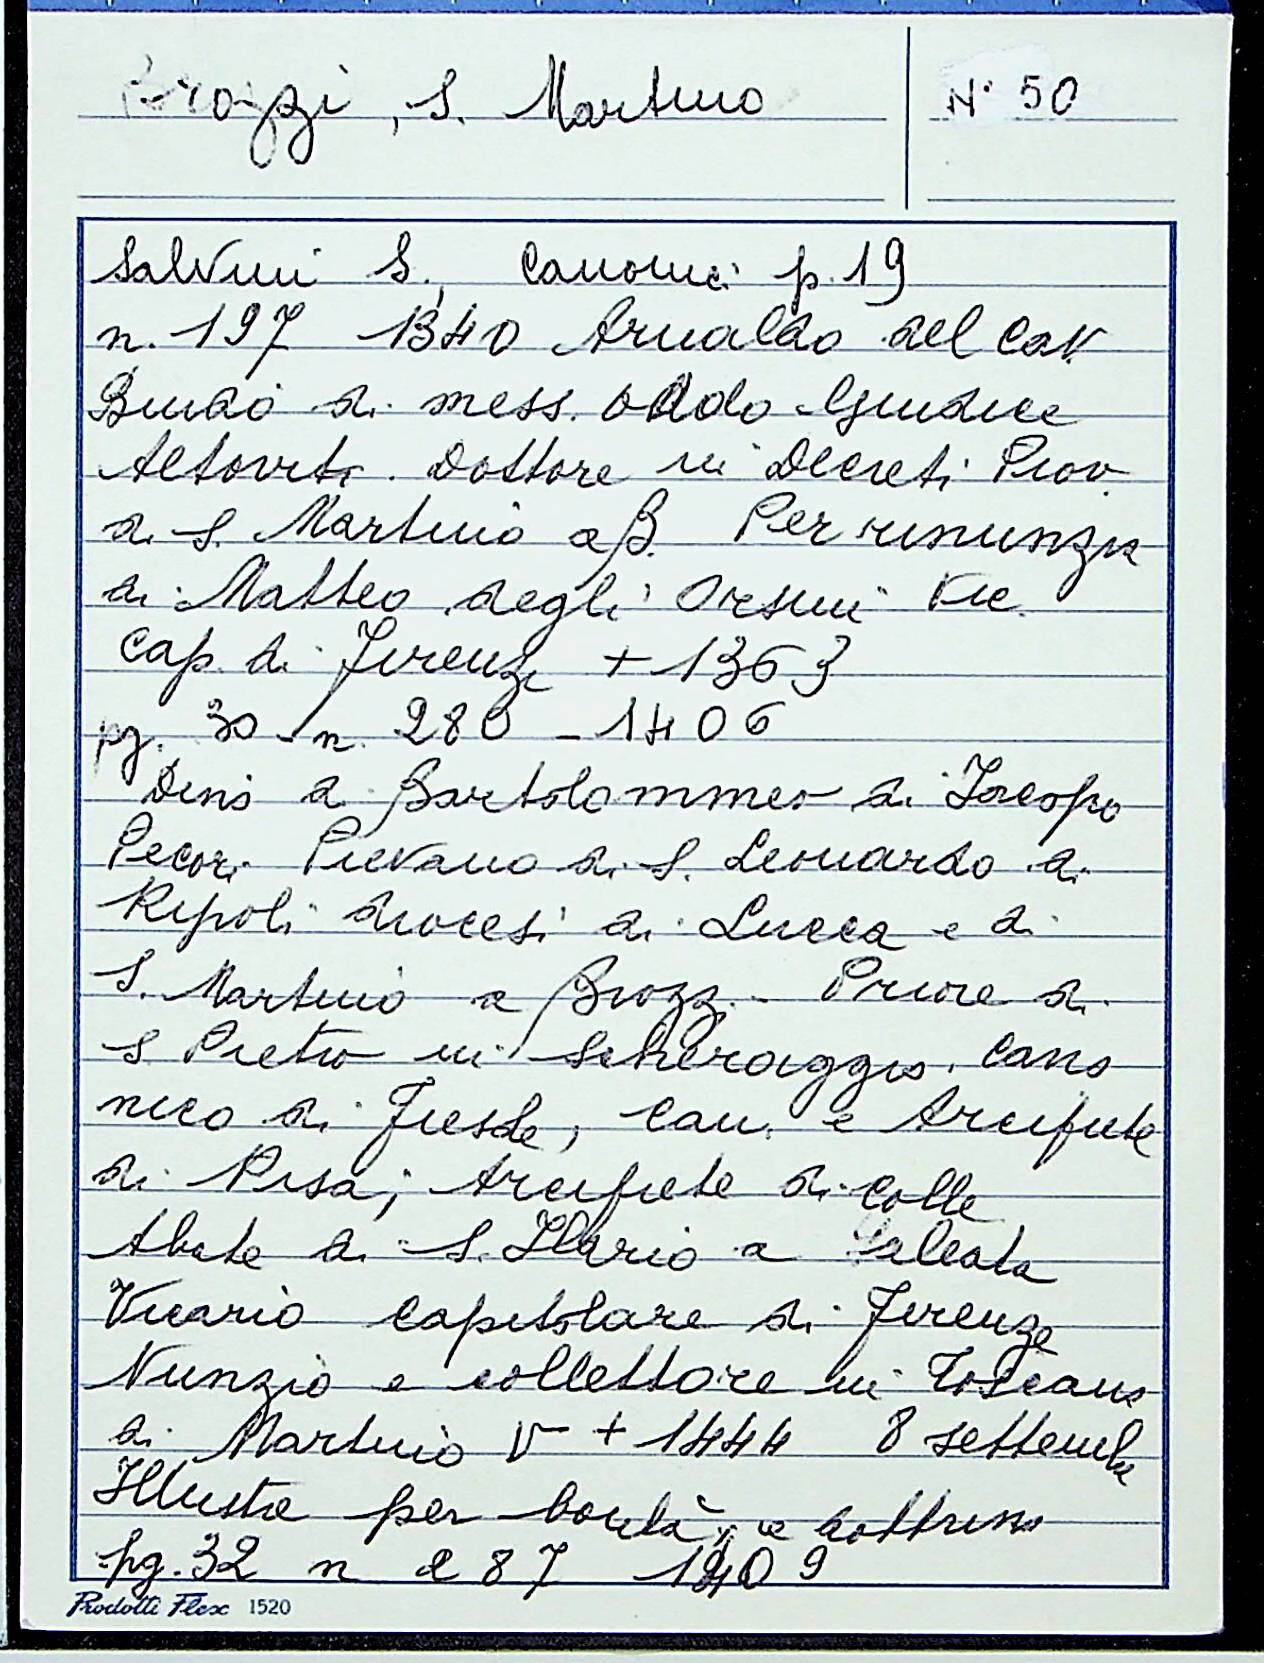 Brozzi, S. Martino
N° 50
Salvini S., Canonici p. 19
n. 197 1340 Arnaldo del Cav
Bindo di mess. Oddo Giudice
Altoviti. Dottore in Decreti Piov.
di S. Martino a B. Per rinunzia
di Matteo degli Orsini Vic.
Cap. di Firenze + 1363
pg. 30 - n. 280 - 1406
Dino di Bartolommeo di Jacopo
Pecori Pievano di S. Leonardo di
Ripoli diocesi di Lucca e di
S. Martino a Brozzi - Priore di
S Pietro in Scheraggio. Cano
nico di Fiesole, Can. e Arciprete
di Pisa; Arciprete di Colle
Abate di S. Ilario a Galeata
Vicario capitolare di Firenze
Nunzio e collettore in Toscana
di Martino V + 1444 8 settembre
Illustre per bontà, e dottrina
pg. 32 n 287 1409
Prodotti Flex 1520